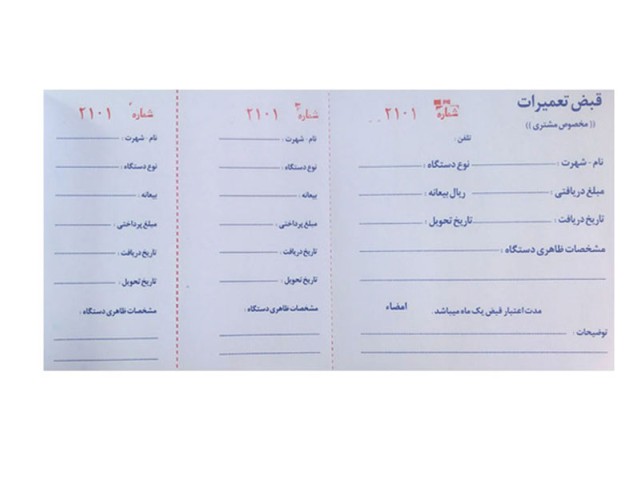 قبض تعمیرات
(( مخصوص مشتری ))
شماره ۲۱۰۱
تلفن :
نام - شهرت : نوع دستگاه :
مبلغ دریافتی : ریال بیعانه :
تاریخ دریافت : تاریخ تحویل :
مشخصات ظاهری دستگاه :
مدت اعتبار قبض یک ماه میباشد . امضاء
توضیحات :
شماره ۲۱۰۱
نام - شهرت :
نوع دستگاه :
بیعانه :
مبلغ پرداختی :
تاریخ دریافت :
تاریخ تحویل :
مشخصات ظاهری دستگاه :
شماره ۲۱۰۱
نام - شهرت :
نوع دستگاه :
بیعانه :
مبلغ پرداختی :
تاریخ دریافت :
تاریخ تحویل :
مشخصات ظاهری دستگاه :